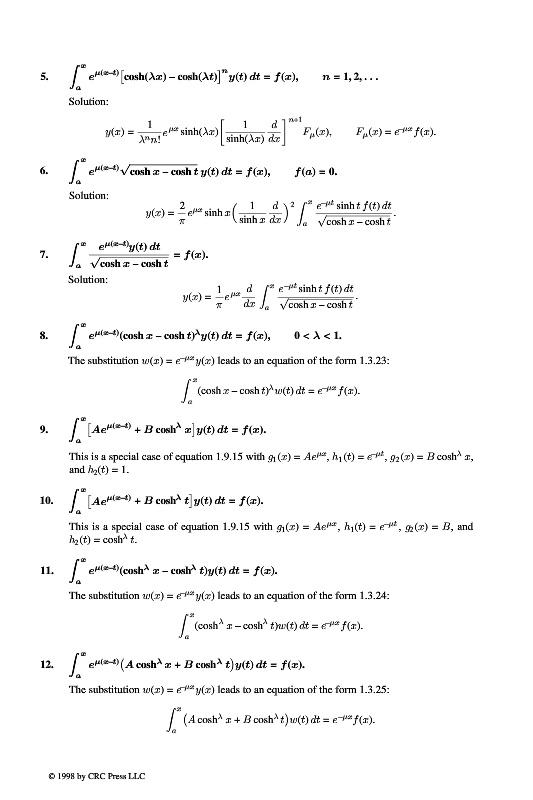 5. ∫ₐˣ e^{μ(x–t)}[cosh(λx) – cosh(λt)]ⁿ y(t) dt = f(x), n = 1, 2, . . .
Solution:
y(x) = \frac{1}{λⁿn!} e^{μx} sinh(λx) [\frac{1}{sinh(λx)} \frac{d}{dx}]^{n+1} F_μ(x), F_μ(x) = e^{–μx} f(x).
6. ∫ₐˣ e^{μ(x–t)} √(cosh x – cosh t) y(t) dt = f(x), f(a) = 0.
Solution:
y(x) = \frac{2}{π} e^{μx} sinh x (\frac{1}{sinh x} \frac{d}{dx})² ∫ₐˣ \frac{e^{–μt} sinh t f(t) dt}{√(cosh x – cosh t)}.
7. ∫ₐˣ \frac{e^{μ(x–t)}y(t) dt}{√(cosh x – cosh t)} = f(x).
Solution:
y(x) = \frac{1}{π} e^{μx} \frac{d}{dx} ∫ₐˣ \frac{e^{–μt} sinh t f(t) dt}{√(cosh x – cosh t)}.
8. ∫ₐˣ e^{μ(x–t)}(cosh x – cosh t)^λ y(t) dt = f(x), 0 < λ < 1.
The substitution w(x) = e^{–μx}y(x) leads to an equation of the form 1.3.23:
∫ₐˣ (cosh x – cosh t)^λ w(t) dt = e^{–μx} f(x).
9. ∫ₐˣ [Ae^{μ(x–t)} + B cosh^λ x] y(t) dt = f(x).
This is a special case of equation 1.9.15 with g₁(x) = Ae^{μx}, h₁(t) = e^{–μt}, g₂(x) = B cosh^λ x,
and h₂(t) = 1.
10. ∫ₐˣ [Ae^{μ(x–t)} + B cosh^λ t] y(t) dt = f(x).
This is a special case of equation 1.9.15 with g₁(x) = Ae^{μx}, h₁(t) = e^{–μt}, g₂(x) = B, and
h₂(t) = cosh^λ t.
11. ∫ₐˣ e^{μ(x–t)}(cosh^λ x – cosh^λ t)y(t) dt = f(x).
The substitution w(x) = e^{–μx}y(x) leads to an equation of the form 1.3.24:
∫ₐˣ (cosh^λ x – cosh^λ t)w(t) dt = e^{–μx} f(x).
12. ∫ₐˣ e^{μ(x–t)}(A cosh^λ x + B cosh^λ t)y(t) dt = f(x).
The substitution w(x) = e^{–μx}y(x) leads to an equation of the form 1.3.25:
∫ₐˣ (A cosh^λ x + B cosh^λ t)w(t) dt = e^{–μx} f(x).
© 1998 by CRC Press LLC